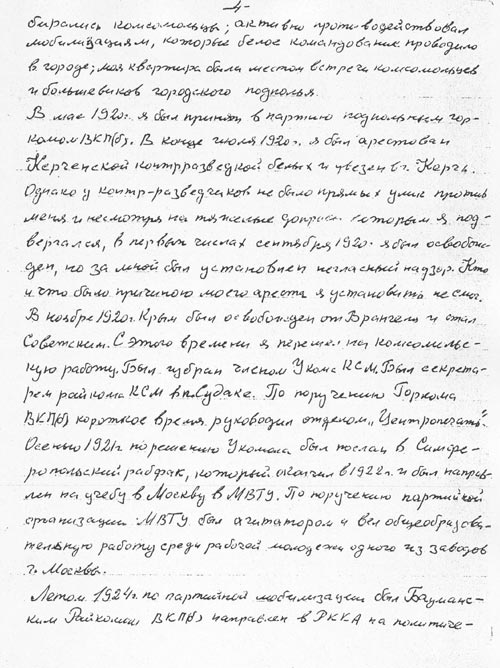 -4-
бирались комсомольцы; активно противодействовал
мобилизациям, которые белое командование проводило
в городе; моя квартира была местом встречи комсомольцев
и большевиков городского подполья.
В мае 1920г. я был принят в партию подпольным гор-
комом ВКП(б). В конце июля 1920г. я был арестован
Керченской контрразведкой белых и увезен в г. Керчь.
Однако у контр-разведчиков не было прямых улик против
меня и несмотря на тяжелые допросы которым я под-
вергался, в первых числах сентября 1920г. я был освобож-
ден, но за мной был установлен негласный надзор. Кто
и что было причиною моего ареста я установить не смог.
В ноябре 1920г. Крым был освобожден от Врангеля и стал
Советским. С этого времени я перешел на комсомольс-
кую работу. Был избран членом Укома КСМ. Был секрета-
рем райкома КСМ в п. Судаке. По поручению Горкома
ВКП(б) короткое время руководил отделом „Центропечать".
Осенью 1921г по решению Укома был послан в Симфе-
ропольский рабфак, который окончил в 1922г. и был направ-
лен на учебу в Москву в МВТУ. По поручению партийной
организации МВТУ был агитатором и вел общеобразова-
тельную работу среди рабочей молодежи одного из заводов
г. Москвы.
Летом 1924г. по партийной мобилизации был Бауманс-
ким Райкомом ВКП(б) направлен в РККА на политиче-